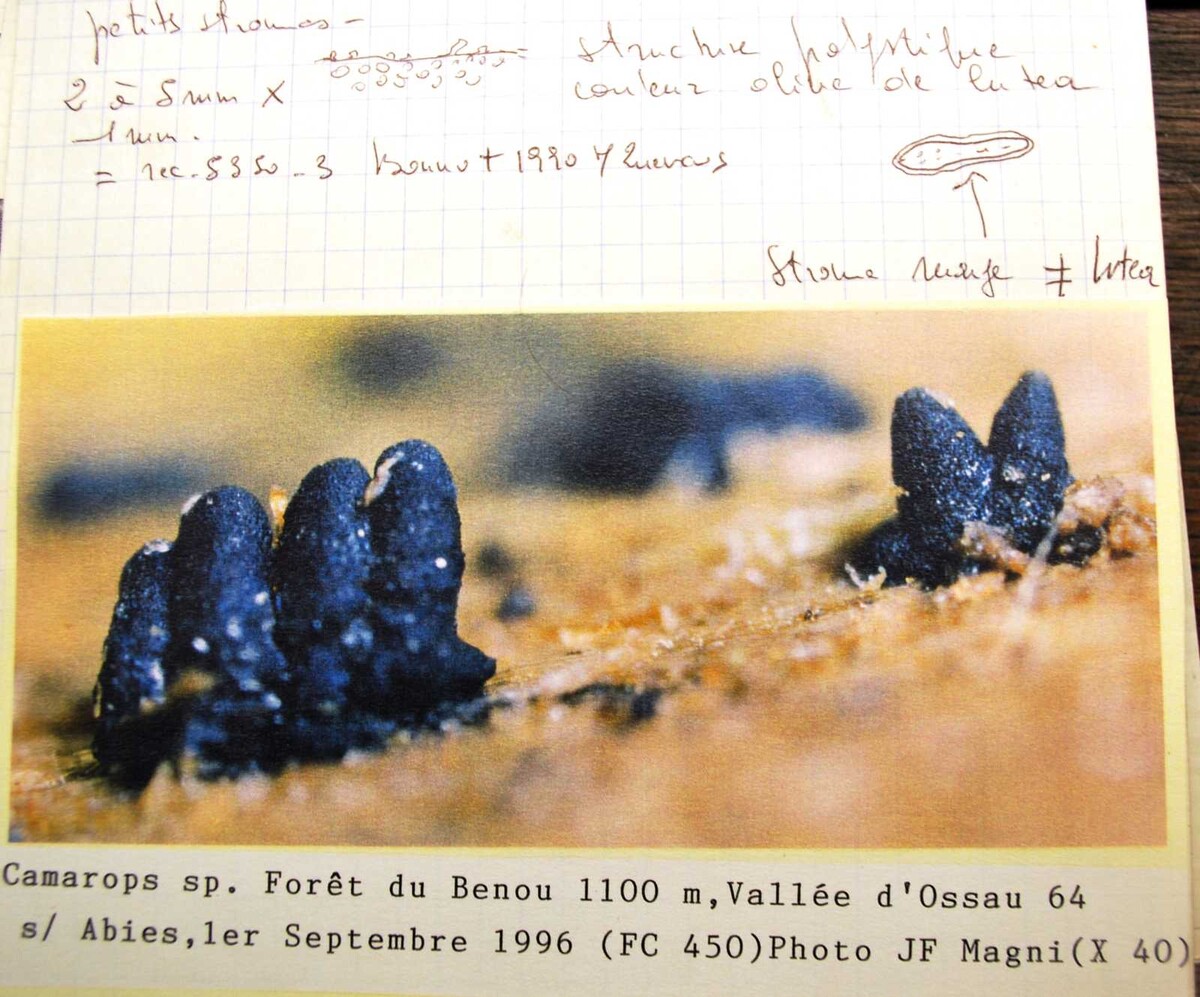 petits stromas -
structure polystique
2 à 5 mm x
couleur olive de lutea
1 mm.
= rec. 5350-3 1990
Stroma ≠ lutea
Camarops sp. Forêt du Benou 1100 m,Vallée d'Ossau 64
s/ Abies,1er Septembre 1996 (FC 450)Photo JF Magni(X 40)